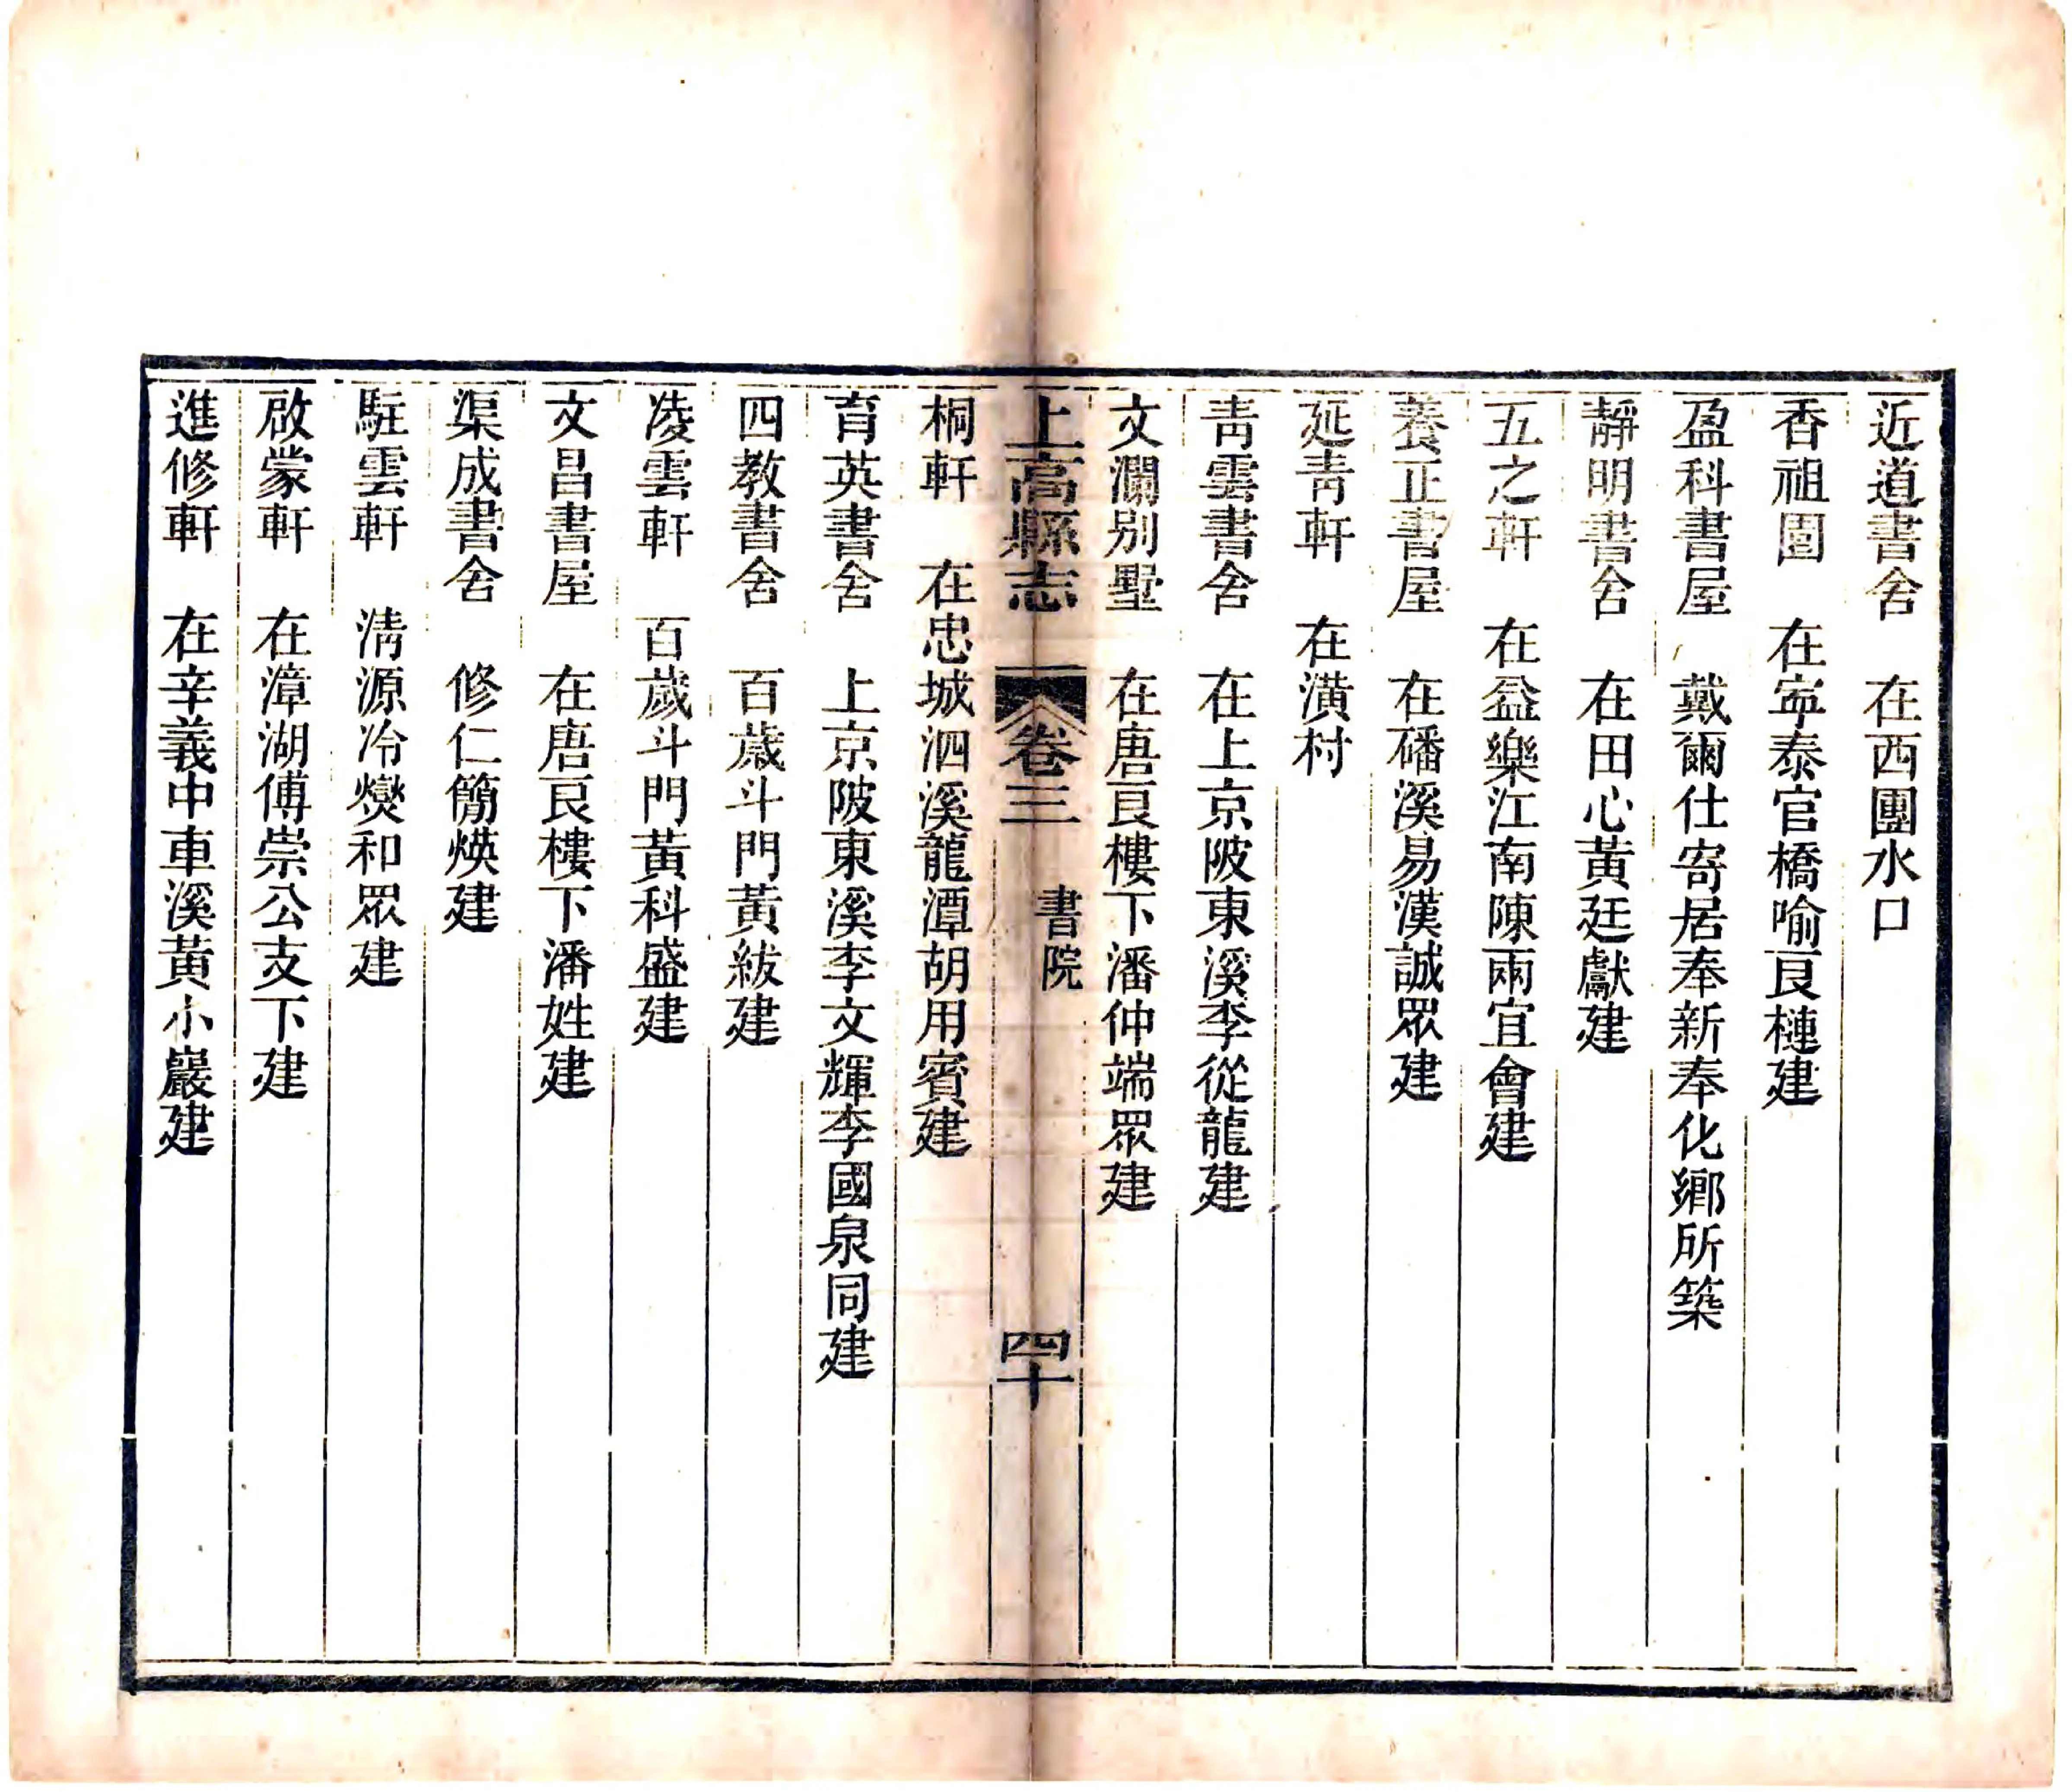 近道書舍　在西團水口
香祖園　在寕泰官橋喻良槤建
盈科書屋　戴爾仕寄居奉新奉化鄉所築
靜明書舍　在田心黃廷獻建
五之軒　在益樂江南陳兩宜會建
養正書屋　在磻溪易漢誠眾建
延靑軒　在潢村
靑雲書舍　在上京陂東溪李從龍建
文瀾别墅　在唐良樓下潘仲端眾建
上高縣志　卷三　書院　四十
桐軒　在忠城泗溪龍潭胡用賓建
育英書舍　上京陂東溪李文輝李國泉同建
四教書舍　百歲斗門黃紱建
凌雲軒　百歲斗門黃科盛建
文昌書屋　在唐良樓下潘姓建
渠成書舍　修仁簡煐建
駐雲軒　淸源冷爕和眾建
啟蒙軒　在漳湖傅崇公支下建
進修軒　在辛義中車溪黃小巖建